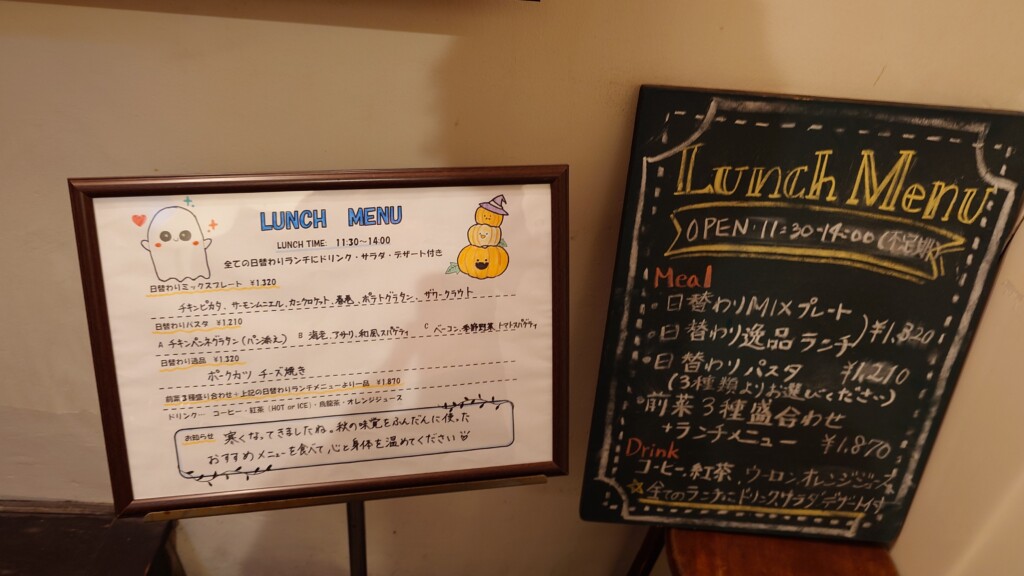 LUNCH MENU
LUNCH TIME: 11:30～14:00
全ての日替わりランチにドリンク・サラダ・デザート付き
日替わりミックスプレート ¥1,320
チキンピカタ、サーモンムニエル、カニクロケット、春巻、ポテトグラタン、ザワークラウト
日替わりパスタ ¥1,210
A チキンペンネグラタン(パン添え) B 海老、アサリ、和風スパゲティ C ベーコン、季節野菜、トマトスパゲティ
日替わり逸品 ¥1,320
ポークカツ チーズ焼き
前菜3種盛り合わせ+上記の日替わりランチメニューより一品 ¥1,870
ドリンク… コーヒー・紅茶(HOT or ICE)・烏龍茶・オレンジジュース
お知らせ 寒くなってきましたね。秋の味覚をふんだんに使った
おすすめメニューを食べて、心と身体を温めてください
Lunch Menu
OPEN 11:30-14:00 (不定期)
Meal
・日替わりMIXプレート
・日替わり逸品ランチ ¥1,320
・日替わりパスタ ¥1,210
(3種類よりお選びください)
・前菜3種盛合わせ
+ランチメニュー ¥1,870
Drink
コーヒー、紅茶、ウーロン、オレンジジュース
☆全てのランチにドリンクサラダデザート付